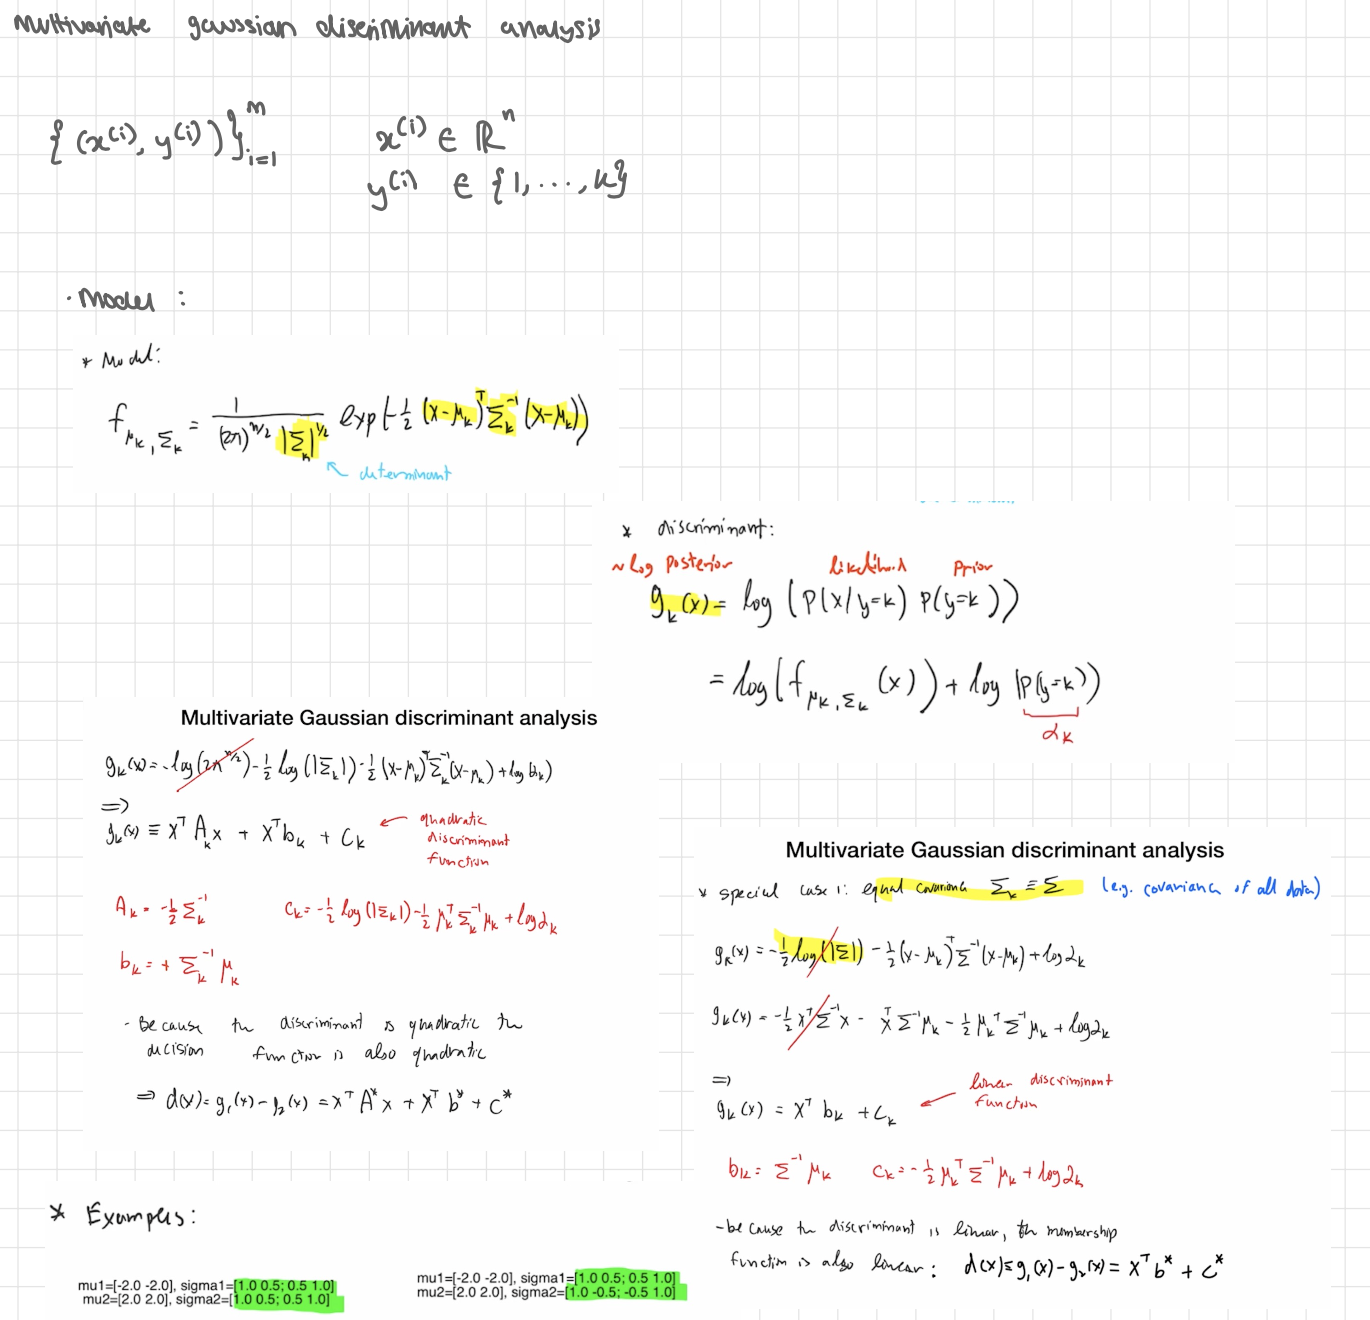 multivariate gaussian discriminant analysis
{(x^(i), y^(i))}_{i=1}^m    x^(i) ∈ ℝ^n
y^(i) ∈ {1, ..., k}
· Model :
* Model:
f_{μ_k, Σ_k} = 1 / ((2π)^{n/2} |Σ_k|^{1/2}) exp(-½ (x-μ_k)^T Σ_k^{-1} (x-μ_k))
determinant
* discriminant:
~ log posterior    likelihood    prior
g_k(x) = log (P(x/y=k) P(y=k))
= log(f_{μ_k, Σ_k}(x)) + log P(y=k))
α_k
Multivariate Gaussian discriminant analysis
g_k(x) = -log(2π^{n/2}) - ½ log(|Σ_k|) - ½ (x-μ_k)^T Σ_k^{-1} (x-μ_k) + log α_k)
⇒
g_k(x) ≡ x^T A_k x + x^T b_k + c_k ← quadratic
discriminant
function
A_k = -½ Σ_k^{-1}    c_k = -½ log(|Σ_k|) - ½ μ_k^T Σ_k^{-1} μ_k + log α_k
b_k = + Σ_k^{-1} μ_k
- Because the discriminant is quadratic the
decision function is also quadratic
⇒ d(x) = g_1(x) - g_2(x) = x^T A* x + x^T b* + c*
Multivariate Gaussian discriminant analysis
* special case 1: equal covariance Σ_k ≡ Σ (e.g. covariance of all data)
g_k(x) = -½ log(|Σ|) - ½ (x-μ_k)^T Σ^{-1} (x-μ_k) + log α_k
g_k(x) = -½ x^T Σ^{-1} x - x^T Σ^{-1} μ_k - ½ μ_k^T Σ^{-1} μ_k + log α_k
⇒
linear discriminant
function
g_k(x) = x^T b_k + c_k
b_k = Σ^{-1} μ_k    c_k = -½ μ_k^T Σ^{-1} μ_k + log α_k
- because the discriminant is linear, the membership
function is also linear: d(x) ≡ g_1(x) - g_2(x) = x^T b* + c*
* Examples:
mu1=[-2.0 -2.0], sigma1=[1.0 0.5; 0.5 1.0]
mu2=[2.0 2.0], sigma2=[1.0 0.5; 0.5 1.0]
mu1=[-2.0 -2.0], sigma1=[1.0 0.5; 0.5 1.0]
mu2=[2.0 2.0], sigma2=[1.0 -0.5; -0.5 1.0]